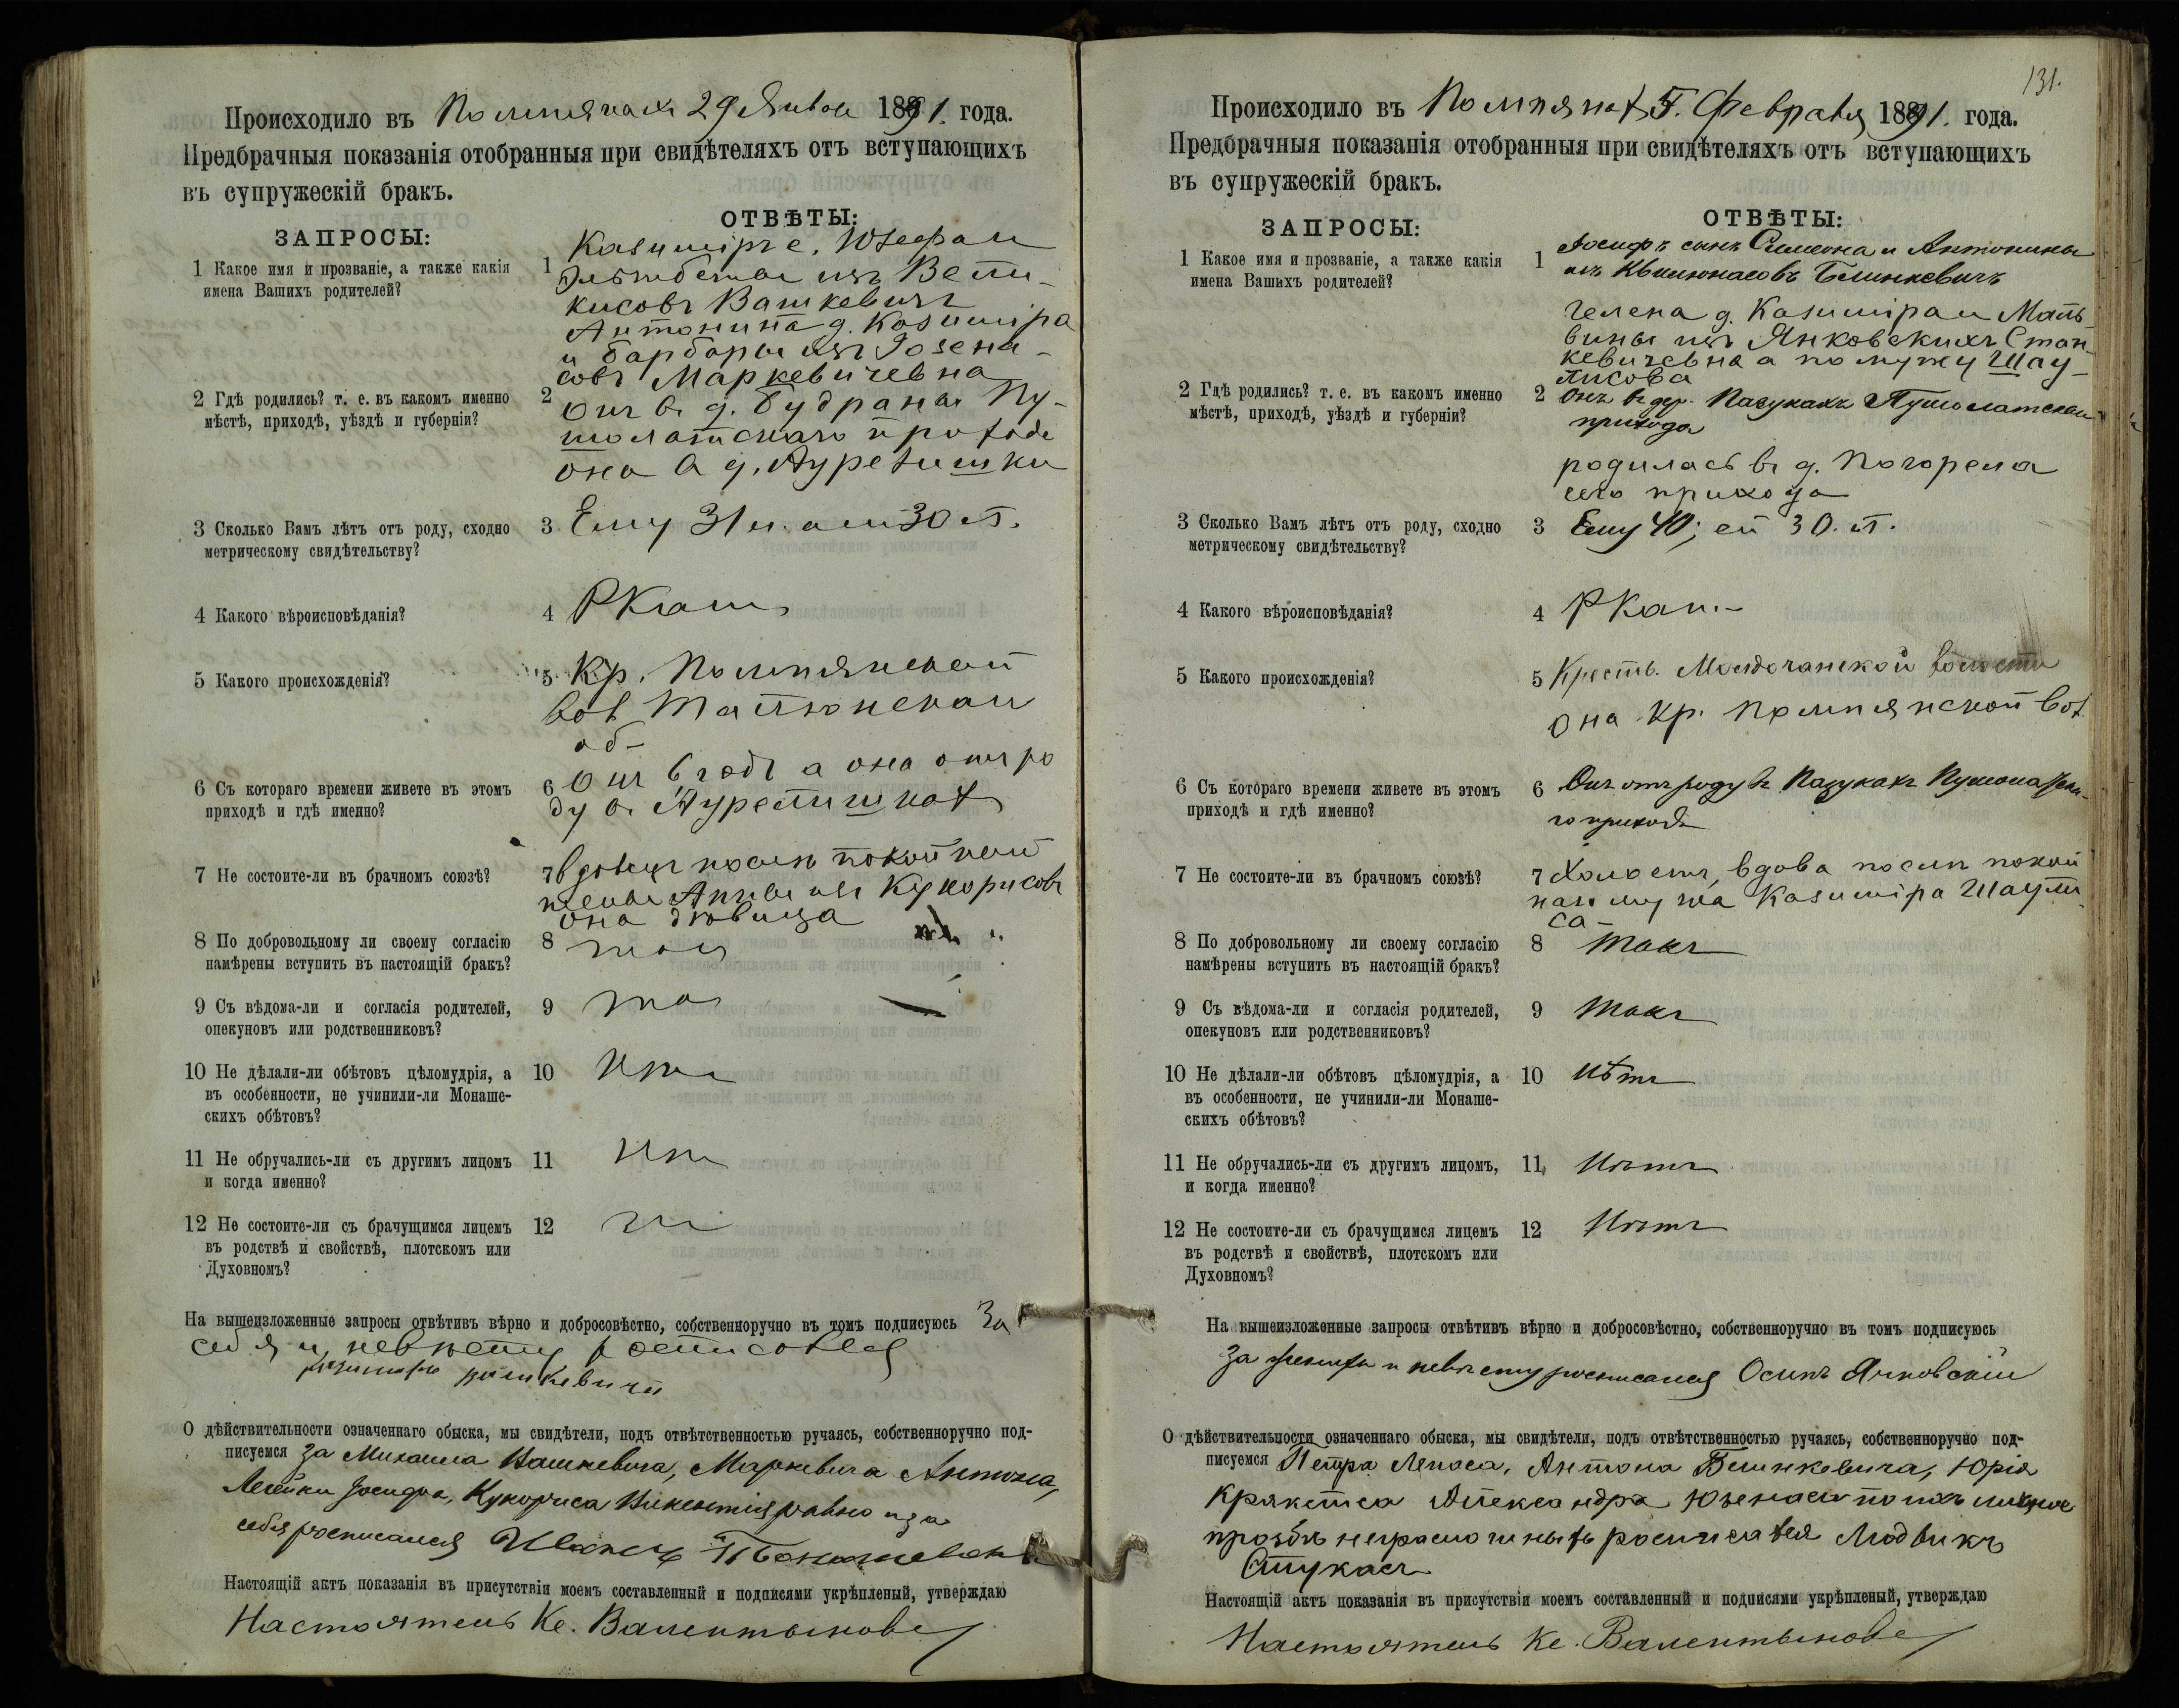 Происходило въ Помпянахъ 29 Янвая 1891. года.
Предбрачныя показанія отобранныя при свидѣтеляхъ отъ вступающихъ
въ супружескій бракъ.
ЗАПРОСЫ:
ОТВѢТЫ:
1 Какое имя и прозваніе, а также какія
имена Вашихъ родителей?
1 Казиміръ с. Юзефа и
Эльжбеты изъ Вели-
кисовъ Вашкевичъ
Антонина д. Казиміра
и Барбары изъ
совъ Маркевичевна
2 Гдѣ родились? т. е. въ какомъ именно
мѣстѣ, приходѣ, уѣздѣ и губерніи?
2 Онъ в. д. Будраны Пу-
шолатскаго прихода
она в д. Аурелишки
3 Сколько Вамъ лѣтъ отъ роду, сходно
метрическому свидѣтельству?
3 Ему 31 л. а ей 30 л.
4 Какого вѣроисповѣданія?
4 РКат.
5 Какого происхожденія?
5 Кр. Помпянской
вол
об-
6 Съ котораго времени живете въ этомъ
приходѣ и гдѣ именно?
6 Онъ 6 годъ а она отъ ро
ду в. Аурелишкахъ
7 Не состоите-ли въ брачномъ союзѣ?
7 вдовецъ послѣ покойной
жены Анны изъ Кукорисовъ
она дѣвица
8 По добровольному ли своему согласію
намѣрены вступить въ настоящій бракъ?
8 такъ
9 Съ вѣдома-ли и согласія родителей,
опекуновъ или родственниковъ?
9 такъ
10 Не дѣлали-ли обѣтовъ цѣломудрія, а
въ особенности, не учинили-ли Монаше-
скихъ обѣтовъ?
10 Нѣтъ
11 Не обручались-ли съ другимъ лицомъ
и когда именно?
11 Нѣтъ
12 Не состоите-ли съ брачущимся лицемъ
въ родствѣ и свойствѣ, плотскомъ или
Духовномъ?
12
На вышеизложенные запросы отвѣтивъ вѣрно и добросовѣстно, собственноручно въ томъ подписуюсь За
себя и невѣсту
О дѣйствительности означеннаго обыска, мы свидѣтели, подъ отвѣтственностью ручаясь, собственноручно под-
писуемся За Михаила Вашкевича, Маркевича Антона,
Лейки Іосифа, Кукориса Викентія равно и за
себя росписался Иванъ
Настоящій актъ показанія въ присутствіи моемъ составленный и подписями укрѣпленый, утверждаю
Настоятель Кс. Валентынове
131.
Происходило въ Помпянахъ 5. Февраля 1891. года.
Предбрачныя показанія отобранныя при свидѣтеляхъ отъ вступающихъ
въ супружескій бракъ.
ЗАПРОСЫ:
ОТВѢТЫ:
1 Какое имя и прозваніе, а также какія
имена Вашихъ родителей?
1 Іосифъ сынъ Симеона и Антонины
изъ Квилюнасовъ Блинкевичъ
Гелена д. Казиміра и Маль-
вины изъ Янковскихъ Стан-
кевичевна а по мужу Шау-
лисова
2 Гдѣ родились? т. е. въ какомъ именно
мѣстѣ, приходѣ, уѣздѣ и губерніи?
2 Онъ в дер. Пазукахъ Пушолатскаго
прихода
родилась в. д. Погорела
сего прихода
3 Сколько Вамъ лѣтъ отъ роду, сходно
метрическому свидѣтельству?
3 Ему 40; ей 30. л.
4 Какого вѣроисповѣданія?
4 РКат.
5 Какого происхожденія?
5 Крестъ. волости
она кр. Помпянской вол.
6 Съ котораго времени живете въ этомъ
приходѣ и гдѣ именно?
6 Онъ отъ роду в Пазукахъ Пушолатска-
го прихода
7 Не состоите-ли въ брачномъ союзѣ?
7 Холостъ, вдова послѣ покой
наго мужа Казиміра Шаули
са
8 По добровольному ли своему согласію
намѣрены вступить въ настоящій бракъ?
8 Такъ
9 Съ вѣдома-ли и согласія родителей,
опекуновъ или родственниковъ?
9 Такъ
10 Не дѣлали-ли обѣтовъ цѣломудрія, а
въ особенности, не учинили-ли Монаше-
скихъ обѣтовъ?
10 Нѣтъ
11 Не обручались-ли съ другимъ лицомъ,
и когда именно?
11 Нѣтъ
12 Не состоите-ли съ брачущимся лицемъ
въ родствѣ и свойствѣ, плотскомъ или
Духовномъ?
12 Нѣтъ
На вышеизложенные запросы отвѣтивъ вѣрно и добросовѣстно, собственноручно въ томъ подписуюсь
За жениха и невѣсту росписался Осипъ Янковскій
О дѣйствительности означеннаго обыска, мы свидѣтели, подъ отвѣтственностью ручаясь, собственноручно под-
писуемся Петра Ляпаса, Антона Блинкевича, Юрія
Александра по ихъ личной
прозбѣ неграмотныхъ росписался Людвикъ
Стукасъ
Настоящій актъ показанія въ присутствіи моемъ составленный и подписями укрѣпленый, утверждаю
Настоятель Кс. Валентынове